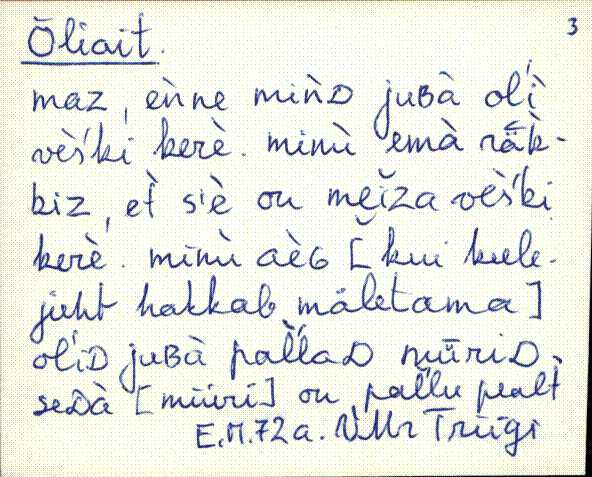 Õliait.
3
maz, èǹne miǹD juBà oĺì
vès̀ki kerè. minù emà rä̀k-
biz, et̀ s'iè on mĕiza vès̀ki
kerè. minù aèG [kui keele-
juht hakkab mäletama]
oĺiD juBà paĺĺaD müüriD.
seDà [müüri] on paĺĺu pealt̀
E.M.72a. VMr Trüügi